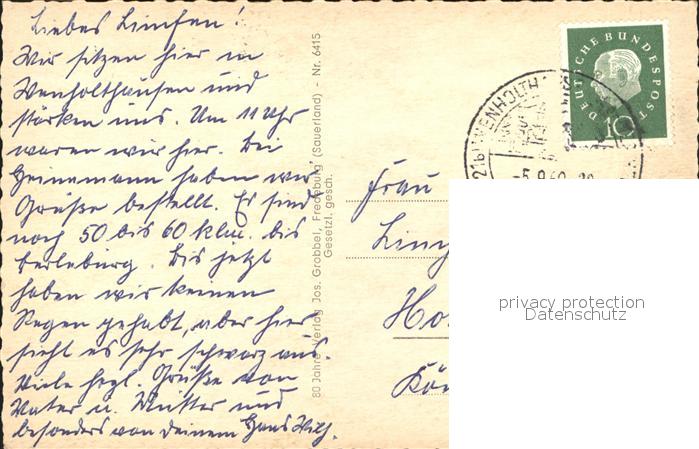 Liebes Linchen!
Wir sitzen hier in
Wenholthausen und
stärken uns. Um 11 Uhr
waren wir hier. Bei
Heinemann haben wir
Grüße bestellt. Es sind
noch 50 bis 60 klm. bis
Berleburg. Bis jetzt
haben wir keinen
Regen gehabt, aber hier
sieht es sehr schwarz aus.
Viele herzl. Grüße von
Vater u. Mutter und
besonders von Deinem Hans Wilh.
80 Jahre Verlag Jos. Grobbel, Fredeburg (Sauerland) - Nr. 6415
Gesetzl. gesch.
DEUTSCHE BUNDESPOST
10
(21b) WENHOLTH
-5.9.60
Frau
privacy protection
Datenschutz